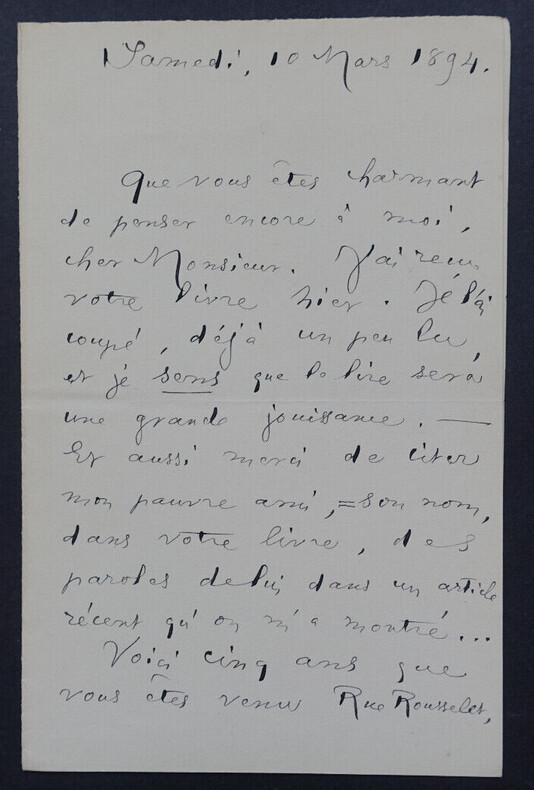 Samedi, 10 Mars 1894.
Que vous êtes charmant
de penser encore à moi,
cher Monsieur. J'ai reçu
votre livre hier. Je l'ai
coupé, déjà un peu lu,
et je sens que le lire sera
une grande jouissance. —
Et aussi merci de citer
mon pauvre ami, = son nom,
dans votre livre, des
paroles de lui dans un article
récent qu'on m'a montré...
Voici cinq ans que
vous êtes venu Rue Rousselet,